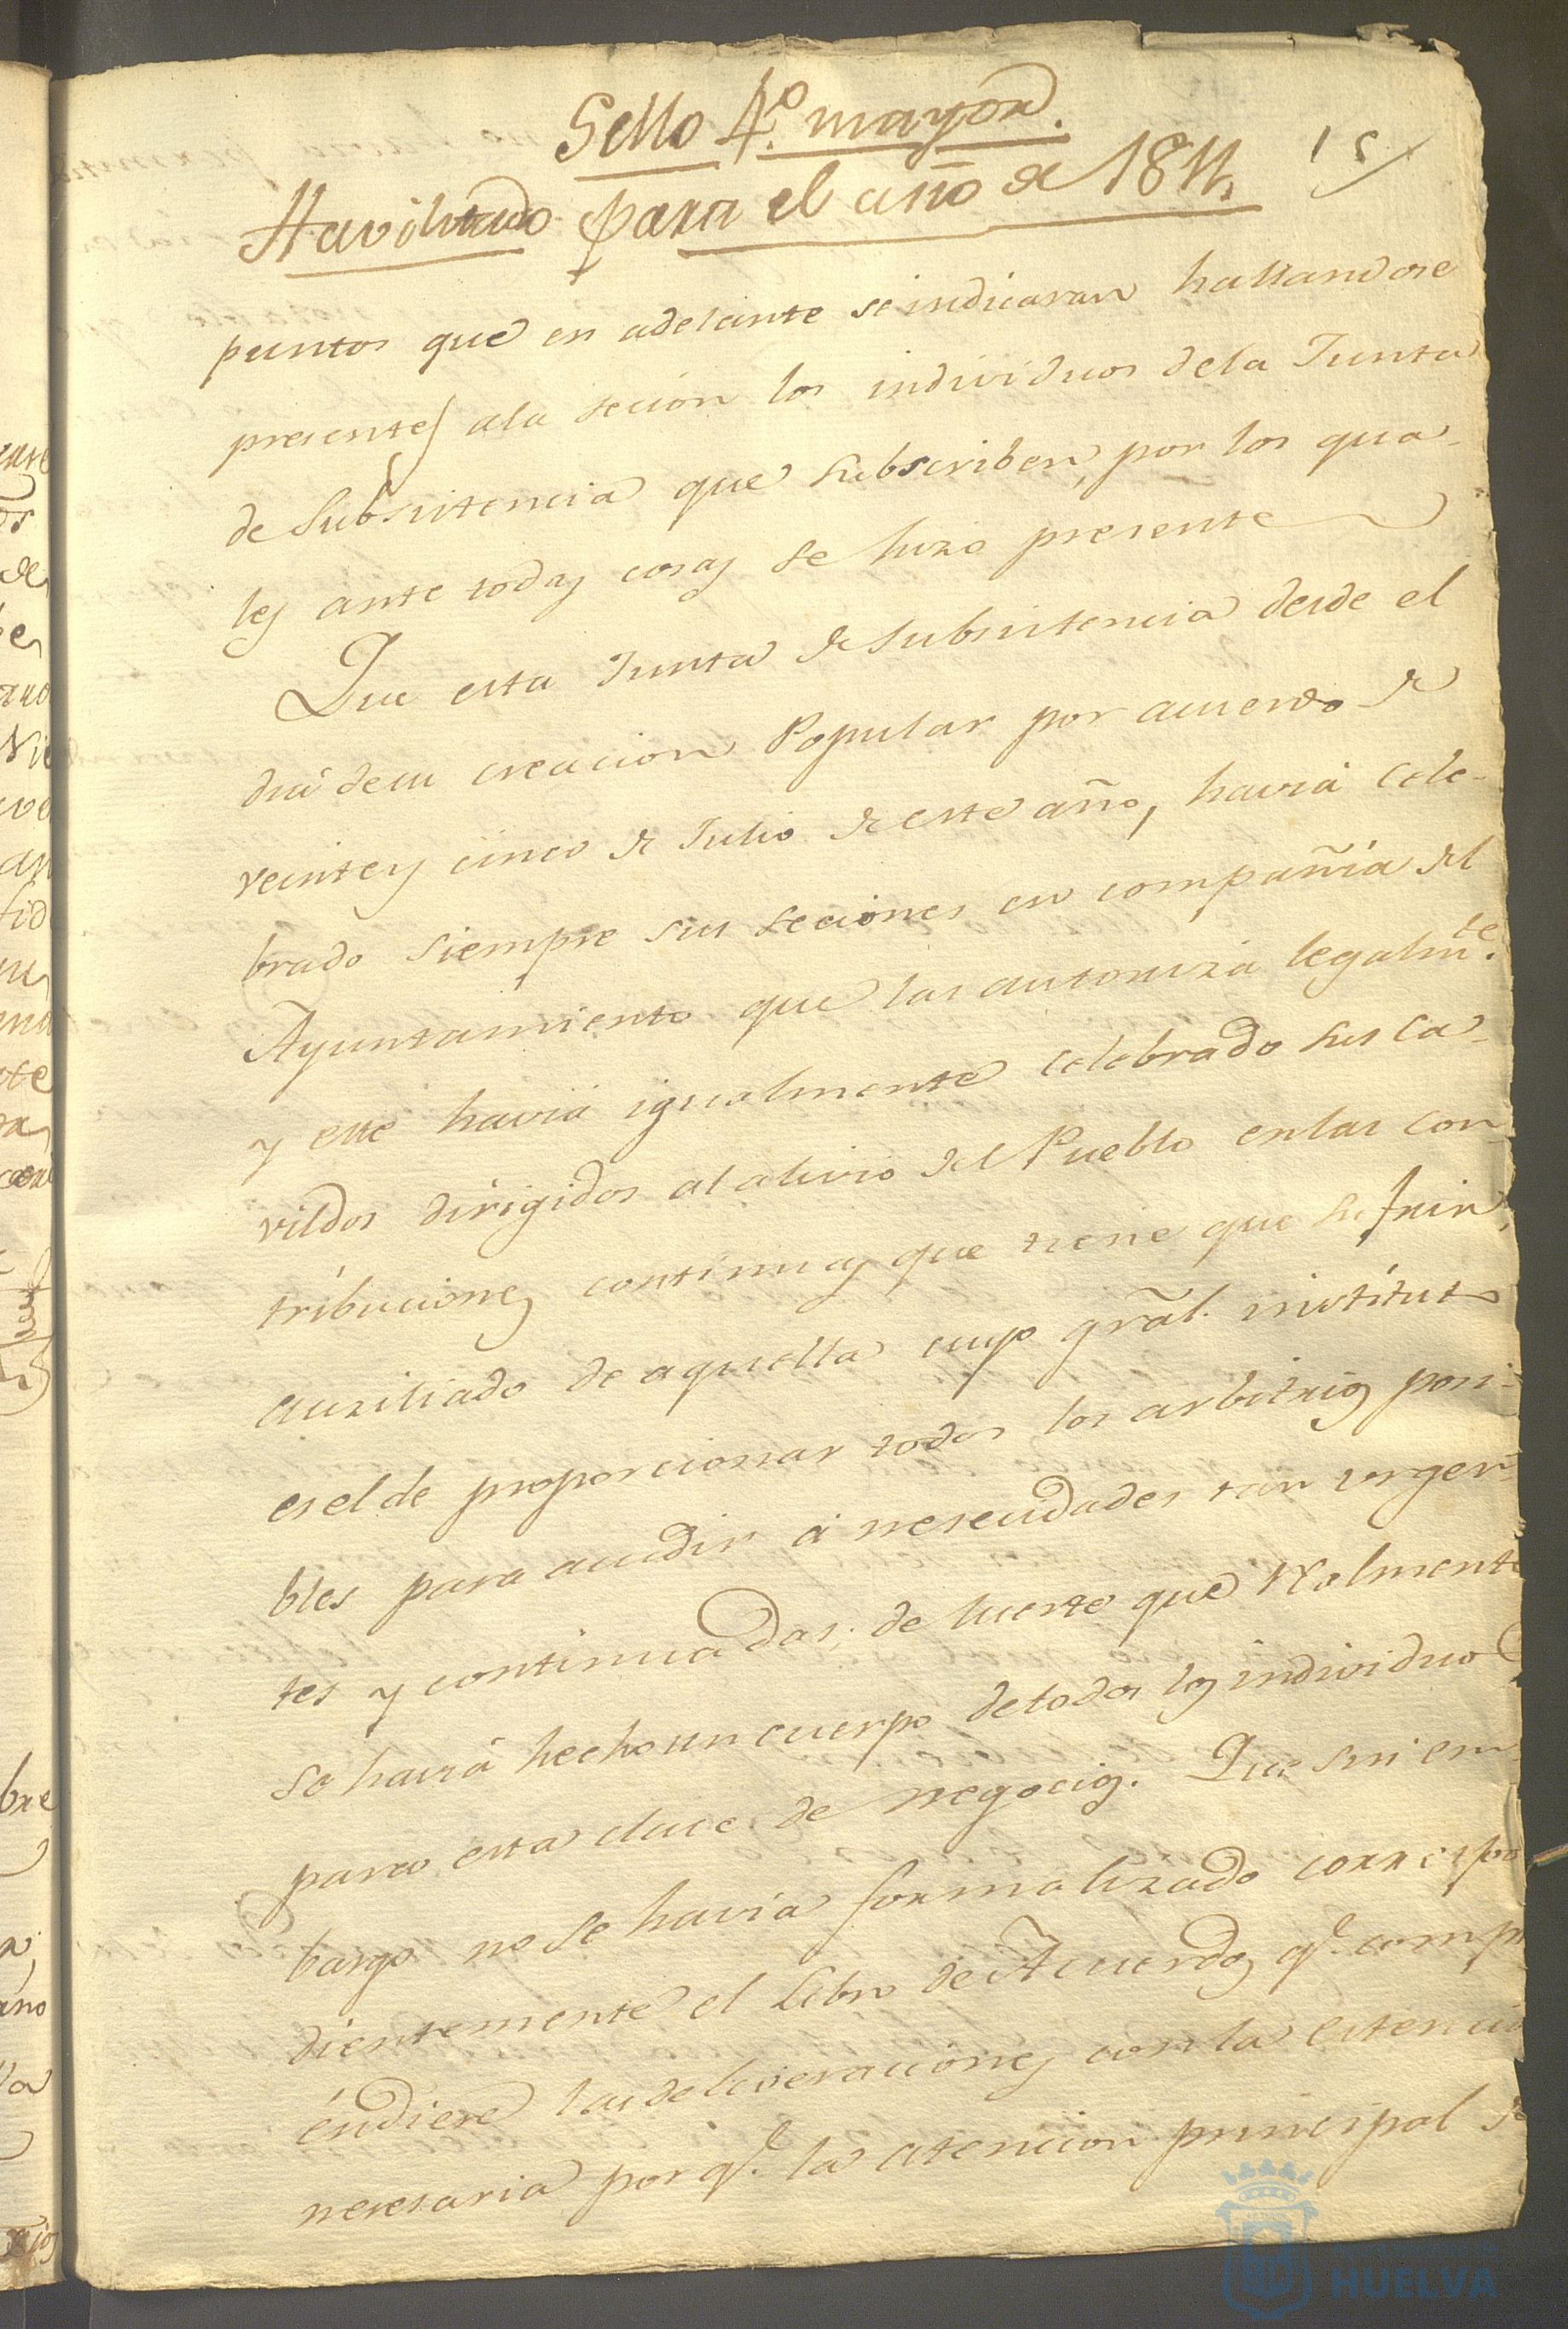 Sello 4.º mayor.
Havilitado para el año de 1811,
15
puntos que en adelante se indicaran hallandose
presentes ala secion los individuos dela Junta
de Subsistencia que subscriben, por los qua-
les ante todas cosas se hizo presente
Que esta Junta de subsistencia desde el
dia desu creacion Popular por acuerdo de
veinte y cinco de Julio de este año, havia cele-
brado siempre sus seciones en compañia del
Ayuntamiento que las autoriza legalmte.
y este havia igualmente celebrado sus ca-
vildos dirigidos al alivio del Pueblo enlas con
tribuciones continuas que tiene que sufrir,
auxiliado de aquella cuyo gral. instituto
es el de proporcionar todos los arbitrios posi-
bles para acudir á nesecidades tan urgen-
tes y continuadas; de suerte que realmente
se havia hecho un cuerpo detodos los individuos
para esta clace de negocios. Que sin em
bargo no se havia formalizado correspon
dientemente el Libro de Acuerdos qe. compr
endiese las deliveraciones con la estencion
necesaria por qe. la atencion principal de
HUELVA